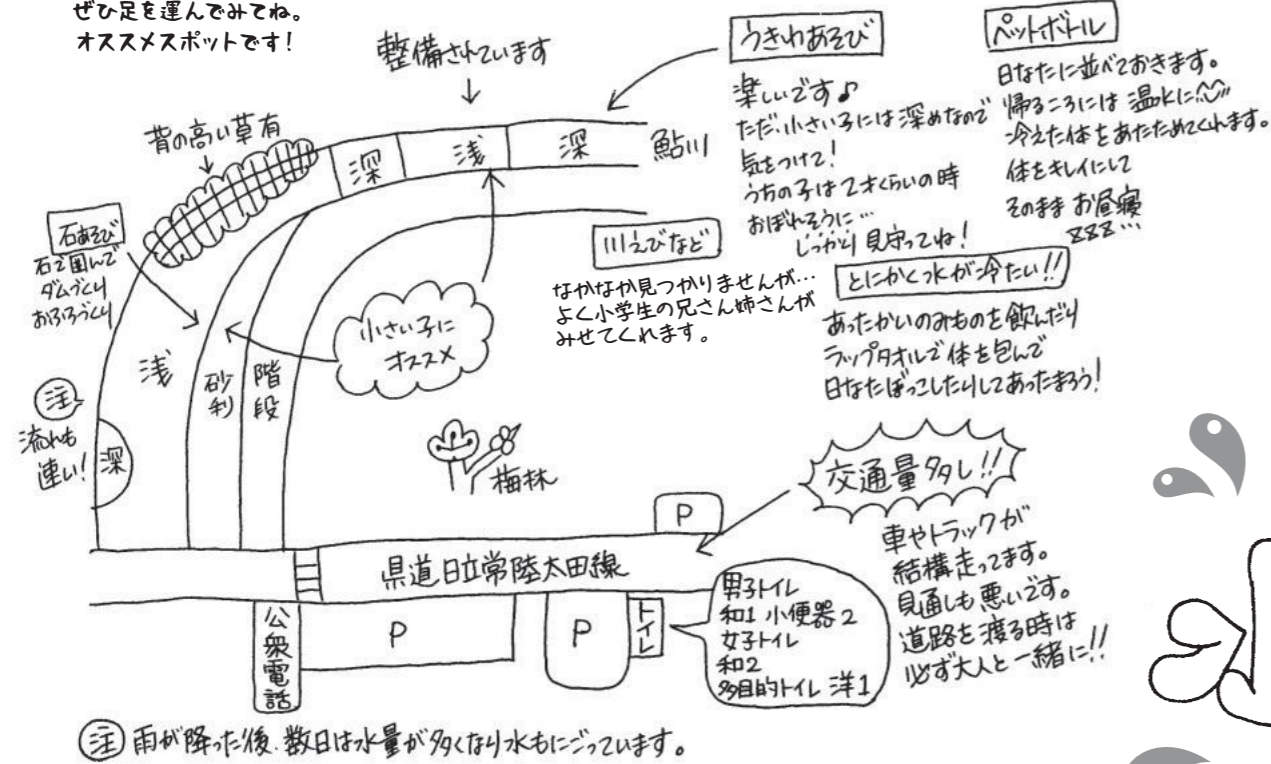 ぜひ足を運んでみてね。
オススメスポットです！
整備されています
背の高い草有
深
浅
深
鮎川
うきわあそび
楽しいです♪
ただ、小さい子には深めなので
気をつけて！
うちの子は2才くらいの時
おぼれそうに…
しっかり見守ってね！
ペットボトル
日なたに並べておきます。
帰るころには温水に
冷えた体をあたためてくれます。
体をキレイにして
そのままお昼寝
ZZZ…
石あそび
石で囲んで
ダムづくり
おふろづくり
川えびなど
なかなか見つかりませんが…
よく小学生の兄さん姉さんが
みせてくれます。
とにかく水が冷たい!!
あったかいのみものを飲んだり
ラップタオルで体を包んで
日なたぼっこしたりしてあったまろう！
小さい子に
オススメ
浅
砂利
階段
注
流れも
速い！
深
梅林
交通量多し!!
車やトラックが
結構走ってます。
見通しも悪いです。
道路を渡る時は
必ず大人と一緒に!!
P
県道日立常陸太田線
公衆電話
P
P
トイレ
男子トイレ
和1 小便器2
女子トイレ
和2
多目的トイレ 洋1
注 雨が降った後、数日は水量が多くなり水もにごっています。